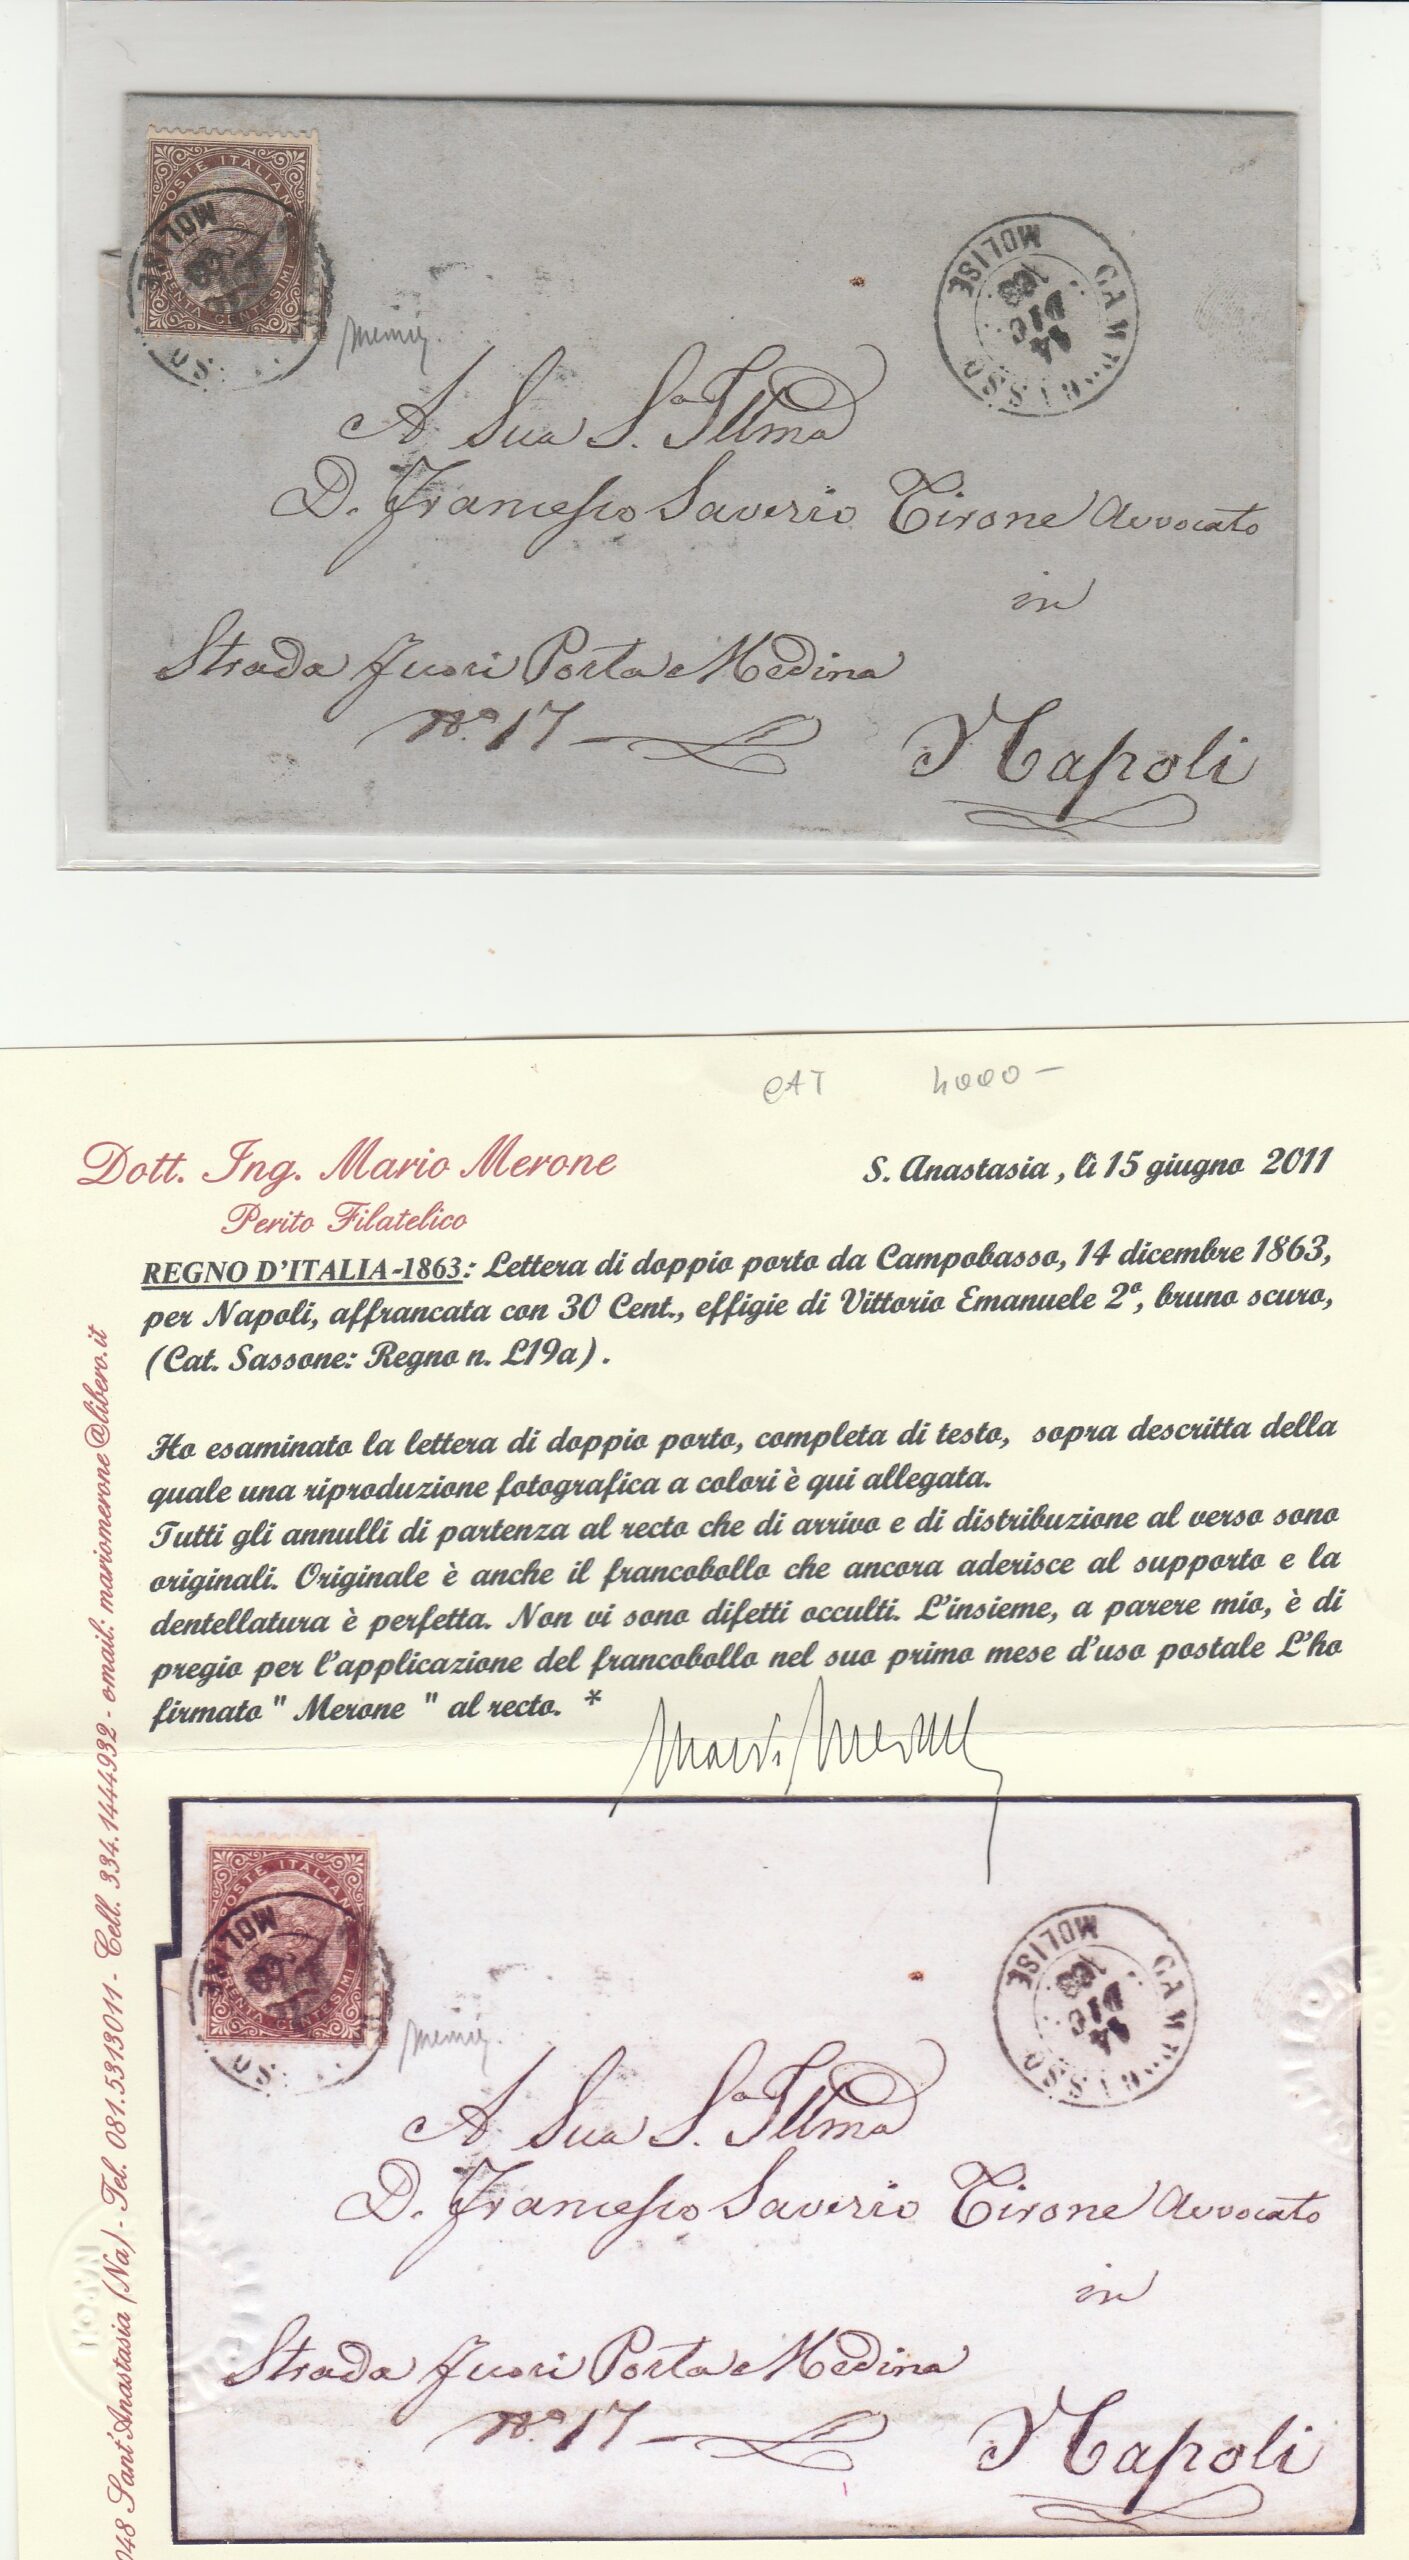 POSTE ITALIAN
TRENTA CENTESIMI
MOLISE
CAMPOBASSO
MOLISE
14
DIC
Merone
A Sua S.a Illma
D. Francesco Saverio Cirone Avvocato
in
Strada Fuori Porta Medina
No. 17
Napoli
CAT 4000 -
Dott. Ing. Mario Merone
Perito Filatelico
S. Anastasia, lì 15 giugno 2011
REGNO D'ITALIA-1863: Lettera di doppio porto da Campobasso, 14 dicembre 1863,
per Napoli, affrancata con 30 Cent., effigie di Vittorio Emanuele 2°, bruno scuro,
(Cat. Sassone: Regno n. L19a).
Ho esaminato la lettera di doppio porto, completa di testo, sopra descritta della
quale una riproduzione fotografica a colori è qui allegata.
Tutti gli annulli di partenza al recto che di arrivo e di distribuzione al verso sono
originali. Originale è anche il francobollo che ancora aderisce al supporto e la
dentellatura è perfetta. Non vi sono difetti occulti. L'insieme, a parere mio, è di
pregio per l'applicazione del francobollo nel suo primo mese d'uso postale L'ho
firmato " Merone " al recto. *
Mario Merone
048 Sant'Anastasia (Na) - Tel. 081.5313011 - Cell. 334.1444932 - email: mariomerone@libero.it
POSTE ITALIAN
TRENTA CENTESIMI
MOLISE
CAMPOBASSO
MOLISE
14
DIC
Merone
A Sua S.a Illma
D. Francesco Saverio Cirone Avvocato
in
Strada Fuori Porta Medina
No. 17
Napoli